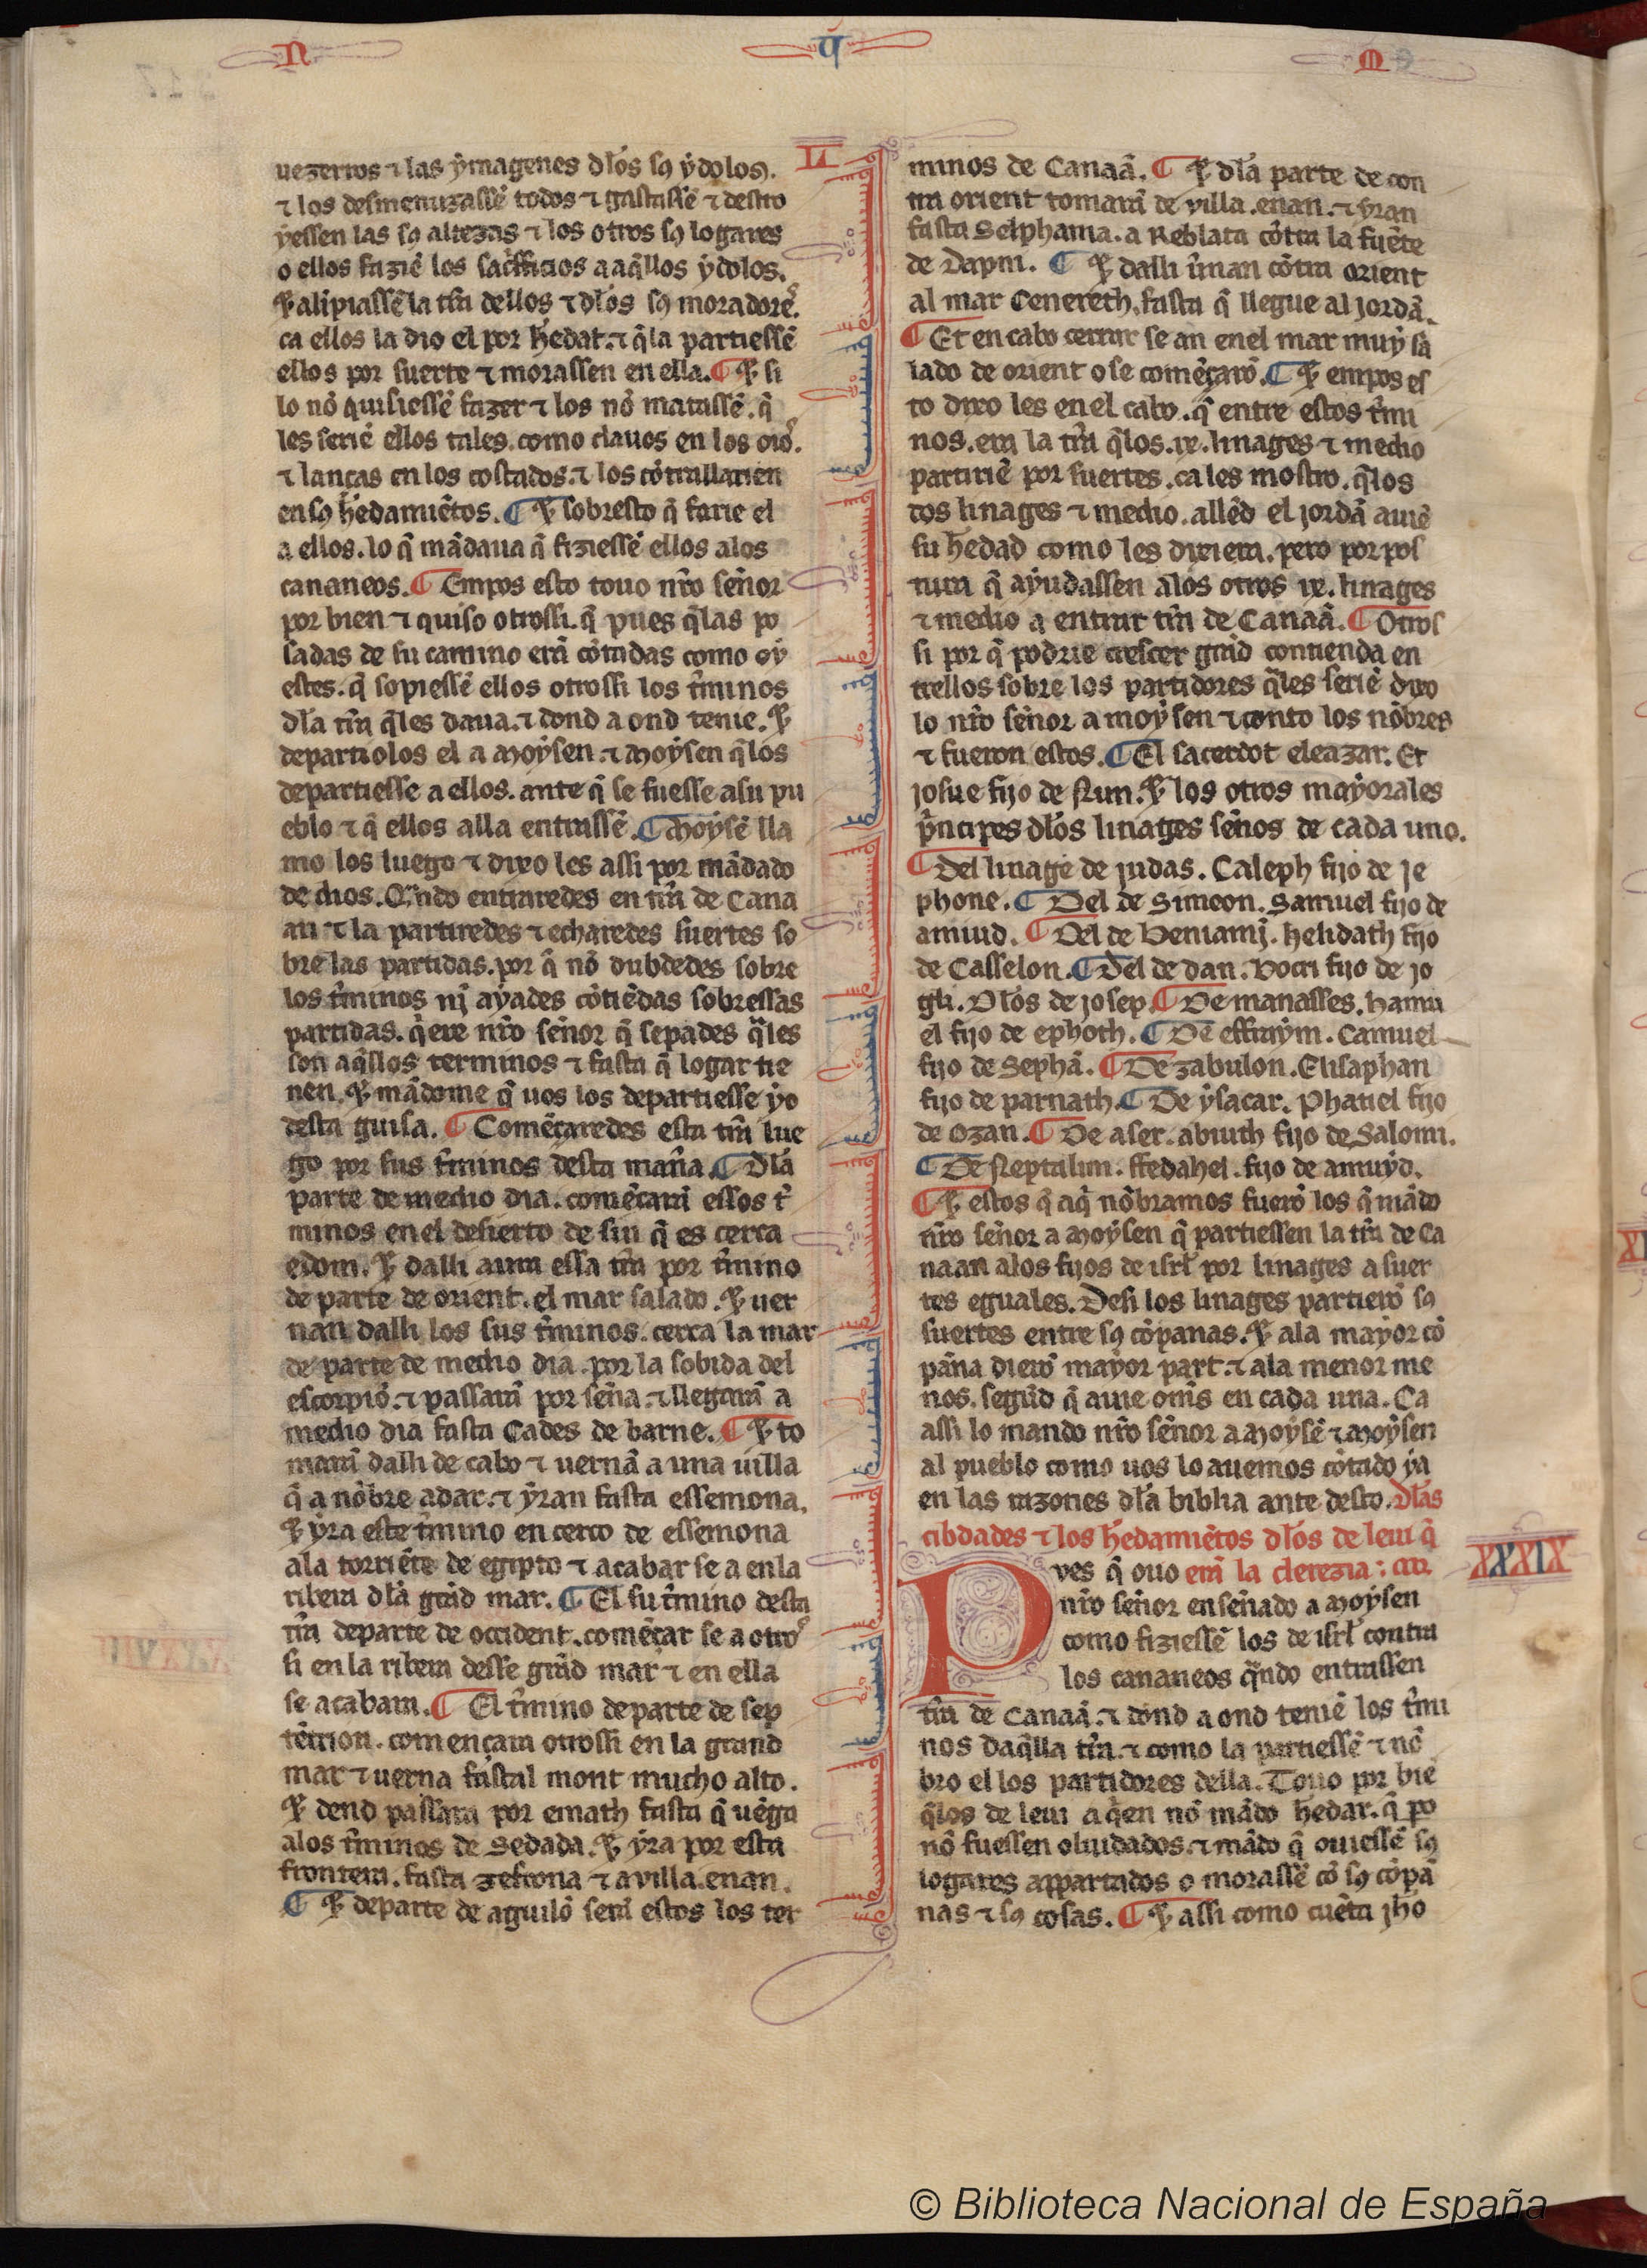 N
Ū
M
LI
uezerros ⁊ las ẏmagenes dłos sꝯ ẏdolos.
⁊ los desmenuzassẽ todos ⁊ gastassẽ ⁊ destro
ẏessen las sꝯ altezas ⁊ los otros sꝯ logares
o ellos faziẽ los sac̃fficios a aq̃llos ẏdolos.
⁊ alĩpiassẽ la tr̃a dellos ⁊ dłos sꝯ moradore᷒.
ca ellos la dio el por h̃edat. ⁊ q̃ la partiessẽ
ellos por suerte ⁊ morassen en ella. ¶ ⁊ si
lo nõ quisiessẽ fazer ⁊ los nõ matassẽ. q̃
les seriẽ ellos tales. como clauos en los oio᷒.
⁊ lanças en los costados. ⁊ los cõtrallarien
en sꝯ h̃edamiẽtos. ¶ ⁊ sobresto q̃ farie el
a ellos. lo q̃ mãdaua q̃ fiziessẽ ellos alos
cananeos. ¶ Empos esto touo nr̃o señor
por bien ⁊ quiso otrossi. q̃ pues q̃ las po
sadas de su camino erã cõtadas como oẏ
estes. q̃ sopiessẽ ellos otrossi los t̃minos
dła tr̃a q̃les daua. ⁊ dond a ond tenie. ⁊
departiolos el a Moẏsen. ⁊ Moẏsen q̃los
departiesse a ellos. ante q̃ se fuesse asu pu
eblo ⁊ q̃ ellos alla entrassẽ. ¶ Moẏsẽ lla
mo los luego ⁊ dixo les assi por mãdado
de dios. Qñdo entraredes en tr̃a de Cana
an ⁊ la partiredes ⁊ echaredes suertes so
bre las partidas. por q̃ nõ dubdedes sobre
los t̃minos nj aẏades cõtiẽdas sobressas
partidas. q̃ere nr̃o señor q̃ sepades q̃les
son aq̃llos terminos ⁊ fasta q̃ logar tie
nen. ⁊ mãdome q̃ uos los departiesse ẏo
desta guisa. ¶ Comẽçaredes esta tr̃a lue
go por sus t̃minos desta mañа. ¶ Dła
parte de medio dia. comẽçarã essos t̃
minos en el desierto de sin q̃ es cerca
edom. ⁊ dalli aura essa tr̃a por t̃mino
de parte de orient. el mar salado. ⁊ uer
nan dalli los sus t̃minos. cerca la mar
de parte de medio dia. por la sobida del
escorpiõ. ⁊ passarã por seña. ⁊ llegarã a
medio dia fasta Cades de barne. ¶ ⁊ to
marã dalli de cabo ⁊ uernã a una uilla
q̃ a nõbre adar. ⁊ ẏran fasta essemona.
⁊ ẏra este t̃mino en cerco de essemona
ala torriẽte de egipto ⁊ acabar se a enla
ribera dła grãd mar. ¶ El su t̃mino desta
tr̃a departe de occident. comẽçar se a otro᷒
si en la ribera desse grãd mar ⁊ en ella
se acabara. ¶ El t̃mino departe de sep
tẽtrion. començara otrossi en la grand
mar ⁊ uerna fastal mont mucho alto.
⁊ dend passara por emath fasta q̃ uẽga
alos t̃minos de Sedada. ⁊ ẏra por esta
frontera. fasta zefrona ⁊ a villa. enan.
¶ ⁊ departe de aguilõ serã estos los ter
minos de Canaã. ¶ ⁊ dła parte de con
tra orient tomarã de villa. enan. ⁊ ẏran
fasta Selphama. a Reblata cõtra la fuẽte
de Dapni. ¶ ⁊ dalli ĩran cõtra orient
al mar Cenereth. fasta q̃ llegue al jordã.
¶ Et en cabo cerrar se an enel mar muẏ sa
lado de orient o se comẽçarõ. ¶ ⁊ empos es
to dixo les en el cabo. q̃ entre estos t̃mi
nos. era la tr̃a q̃los .ix. linages ⁊ medio
partiriẽ por suertes. ca les mostro. q̃los
dos linages ⁊ medio. allẽd el jordã auiẽ
su h̃edad como les dixiera. pero por pos
tura q̃ aẏudassen alos otros ix. linages
⁊ medio a entrar tr̃a de Canaã. ¶ Otros
si por q̃ podrie crescer grãd contienda en
trellos sobre los partidores q̃les seriẽ dixo
lo nr̃o señor a moẏsen ⁊ conto los nõbres
⁊ fueron estos. ¶ El sacerdot eleazar. Et
josue fijo de Nun. ⁊ los otros maẏorales
p̃ncipes dłos linages seños de cada uno.
¶ Del linage de judas. Caleph fijo de je
phone. ¶ Del de Simeon. Samuel fijo de
amiud. ¶ Del de beniamj. helidath fijo
de Casselon. ¶ Del de dan. Bocri fijo de jo
gli. Dłos de josep. ¶ De manasses. hami
el fijo de ephoth. ¶ De effraẏm. Camuel
fijo de Sephã. ¶ De zabulon. Elisaphan
fijo de parnath. ¶ De ẏsacar. Phatiel fijo
de Ozan. ¶ De aser. abiuth fijo de Salomi.
¶ De Neptalim. ffedahel. fijo de amiẏd.
¶ ⁊ estos q̃ aq̃ nõbramos fuerõ los q̃ mãdo
nr̃o señor a Moẏsen q̃ partiessen la tr̃a de Ca
naan alos fijos de isrł por linages a suer
tes eguales. Desi los linages partierõ sꝯ
suertes entre sꝯ cõpanas. ⁊ ala maẏor cõ
pãna dierõ maẏor part. ⁊ ala menor me
nos. segũd q̃ auie om̃s en cada una. Ca
assi lo mando nr̃o señor a Moẏsẽ ⁊ Moẏsen
al pueblo como uos lo auemos cõtado ẏa
en las razones dła biblia ante desto. Dłas
cibdades ⁊ los h̃edamiẽtos dłos de leui q̃
erã la clerezia: Cap̃.
XXXIX
Pves q̃ ouo
nr̃o señor enseñado a Moẏsen
como fiziessẽ los de isrł contra
los cananeos q̃ndo entrassen
tr̃a de Canaã. ⁊ dond a ond teniẽ los t̃mi
nos daq̃lla tr̃a. ⁊ como la partiessẽ ⁊ nõ
bro el los partidores della. Touo por biẽ
q̃los de leui a q̃en nõ mãdo h̃edar. q̃ po
nõ fuessen oluidados. ⁊ mãdo q̃ ouiessẽ sꝯ
logares appartados o morassẽ cõ sꝯ cõpã
nas ⁊ sꝯ cosas. ¶ ⁊ assi como cuẽta jho
© Biblioteca Nacional de España